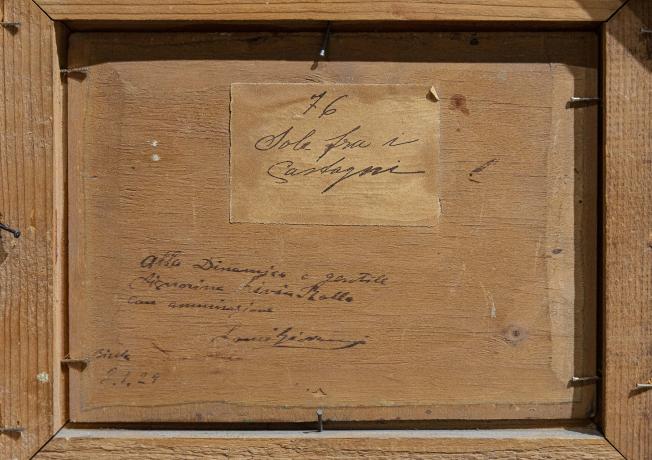 76
Sole fra i
Castagni
Alla Dinamica e gentile
Signorina Livia
con ammirazione
Biella